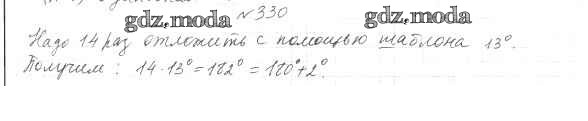 №330
gdz.moda gdz.moda
Надо 14 раз отложить с помощью шаблона 13°.
Получим: 14·13°=182°=180°+2°.